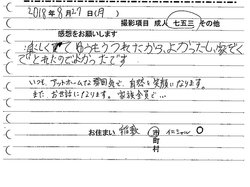 2018年8月27日(月)
撮影項目 成人 七五三 その他
感想をお願いします
楽しくすてきにうつれたから、よかったし、安く
とれたのでよかったです
いつも、アットホームな雰囲気で、自然と笑顔になります。
また、お世話になります。家族全員で…
お住まい 稲敷 市町村